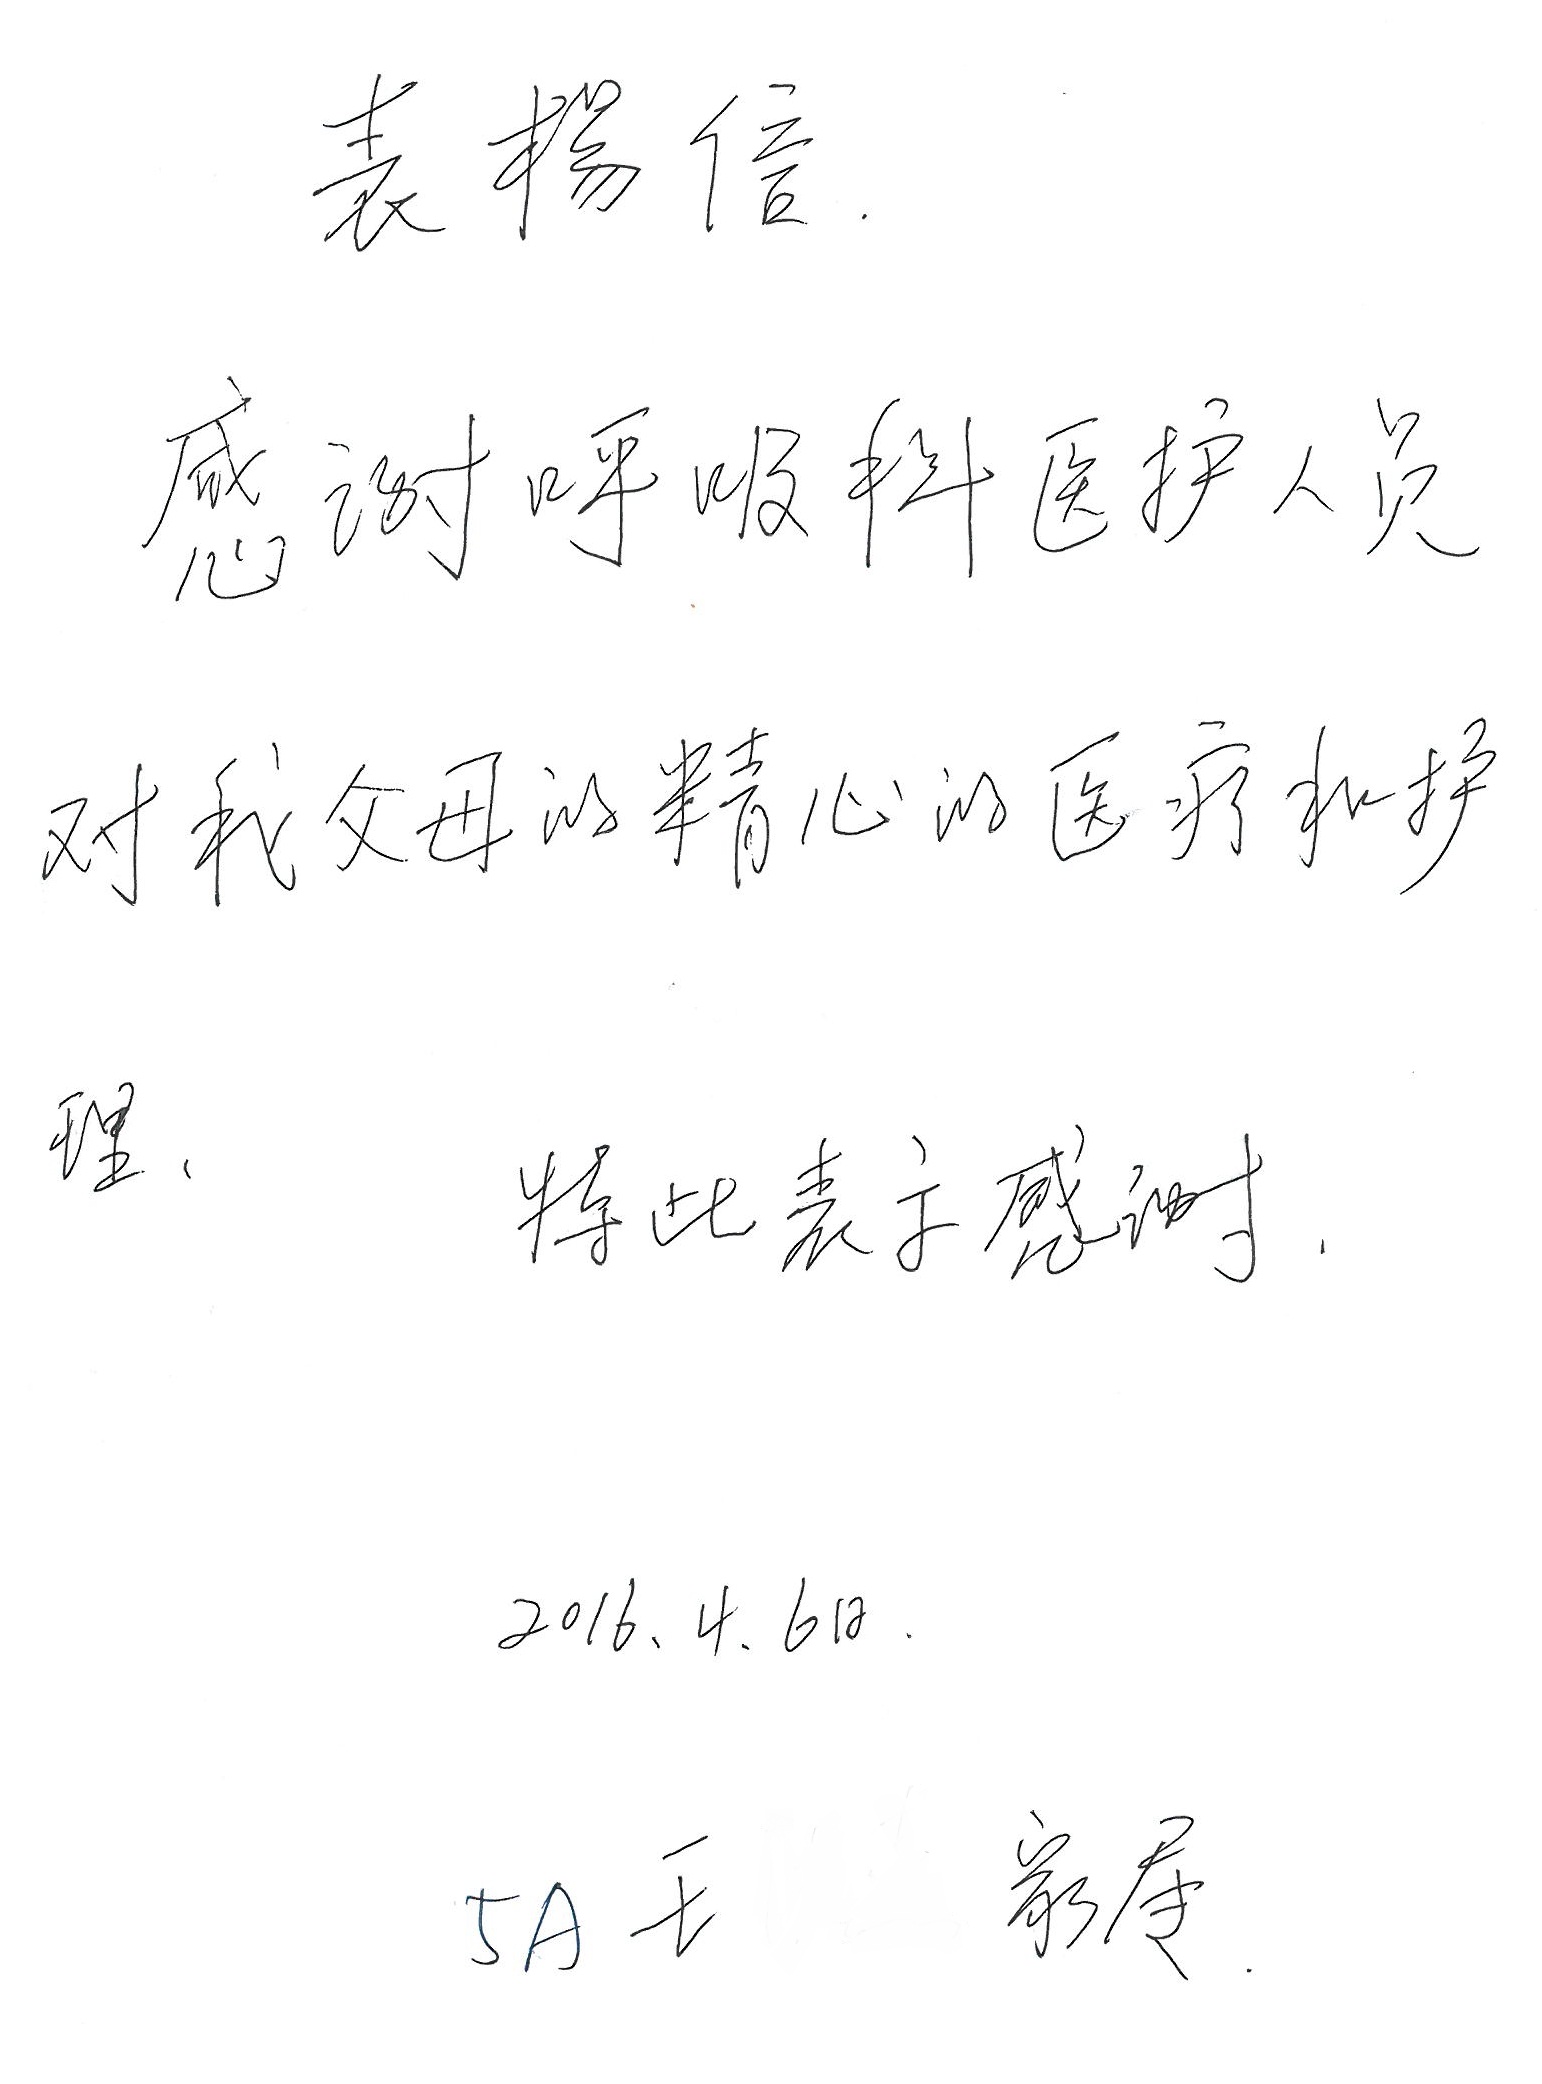 表揚信.
感谢呼吸科医护人员
对我父母的精心的医疗和护
理、 特此表示感谢.
2016.4.6日.
5A 王 家属.